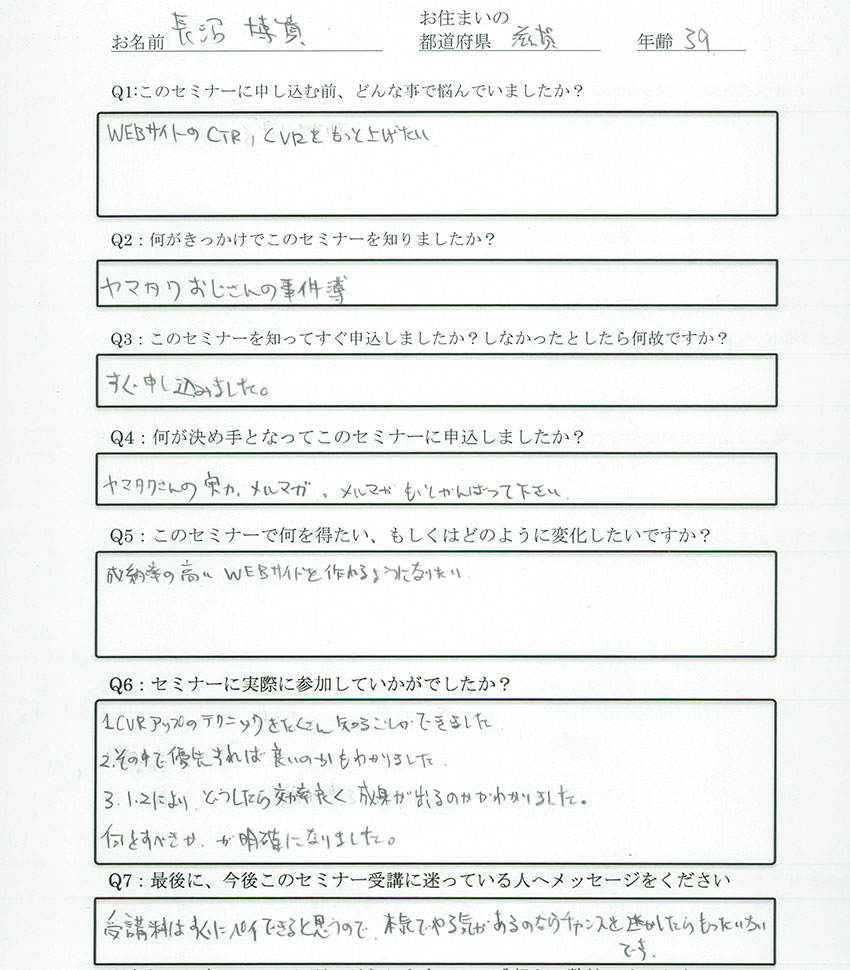 お名前 長沼 博貴 お住まいの都道府県 滋賀 年齢 39
Q1:このセミナーに申し込む前、どんな事で悩んでいましたか？
WEBサイトのCTR, CVRをもっと上げたい
Q2：何がきっかけでこのセミナーを知りましたか？
ヤマタクおじさんの事件簿
Q3：このセミナーを知ってすぐ申込しましたか？しなかったとしたら何故ですか？
すぐ申し込みました。
Q4：何が決め手となってこのセミナーに申込しましたか？
ヤマタクさんの実力、メルマガ。メルマガもっとがんばって下さい
Q5：このセミナーで何を得たい、もしくはどのように変化したいですか？
成約率の高いWEBサイトを作れるようになりたい
Q6：セミナーに実際に参加していかがでしたか？
1.CVRアップのテクニックをたくさん知ることができました
2.その中で優先すれば良いのかもわかりました.
3.1.2により、どうしたら効率良く成果が出るのかがわかりました。
何をすべきか、が明確になりました。
Q7：最後に、今後このセミナー受講に迷っている人へメッセージをください
受講料はすぐにペイできると思うので、本気でやる気があるのならチャンスを逃がしたらもったいない
です.